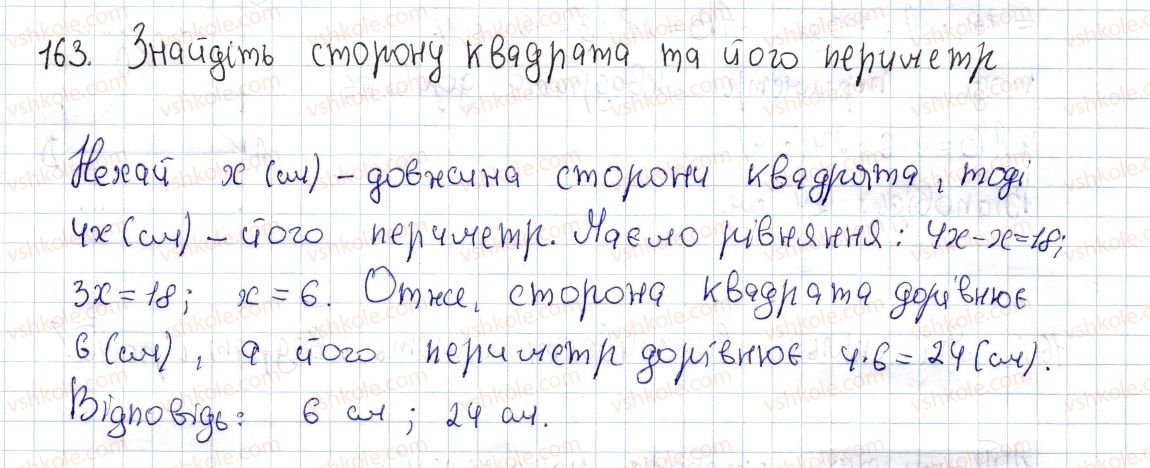 163. Знайдіть сторону квадрата та його периметр
Нехай x (см) – довжина сторони квадрата, тоді
4x (см) – його периметр. Маємо рівняння: 4x-x=18;
3x=18; x=6. Отже, сторона квадрата дорівнює
6 (см), а його периметр дорівнює 4·6=24 (см).
Відповідь: 6 см; 24 см.